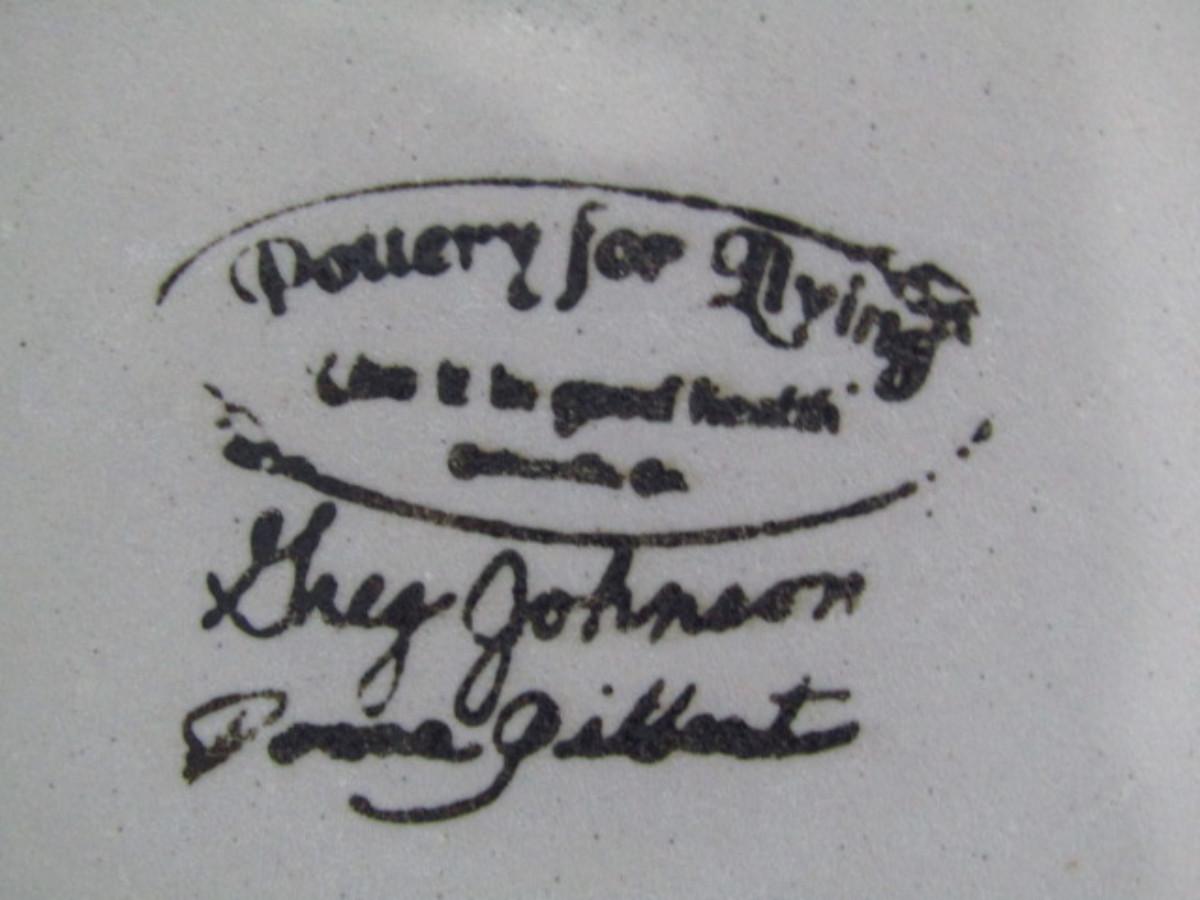 Pottery for Living
Use it in good health
Greg Johnson
Gilbert